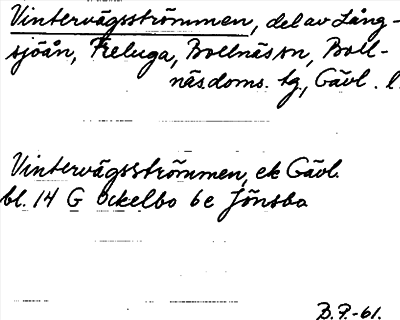 Vintervägsströmmen, del av Lång-
sjöån, Freluga, Bollnäs sn, Boll-
näs doms. tg, Gävl. l.
Vintervägsströmmen, ek Gävl.
bl. 14 G Ockelbo 6e Jönsbo
B.P.-61.